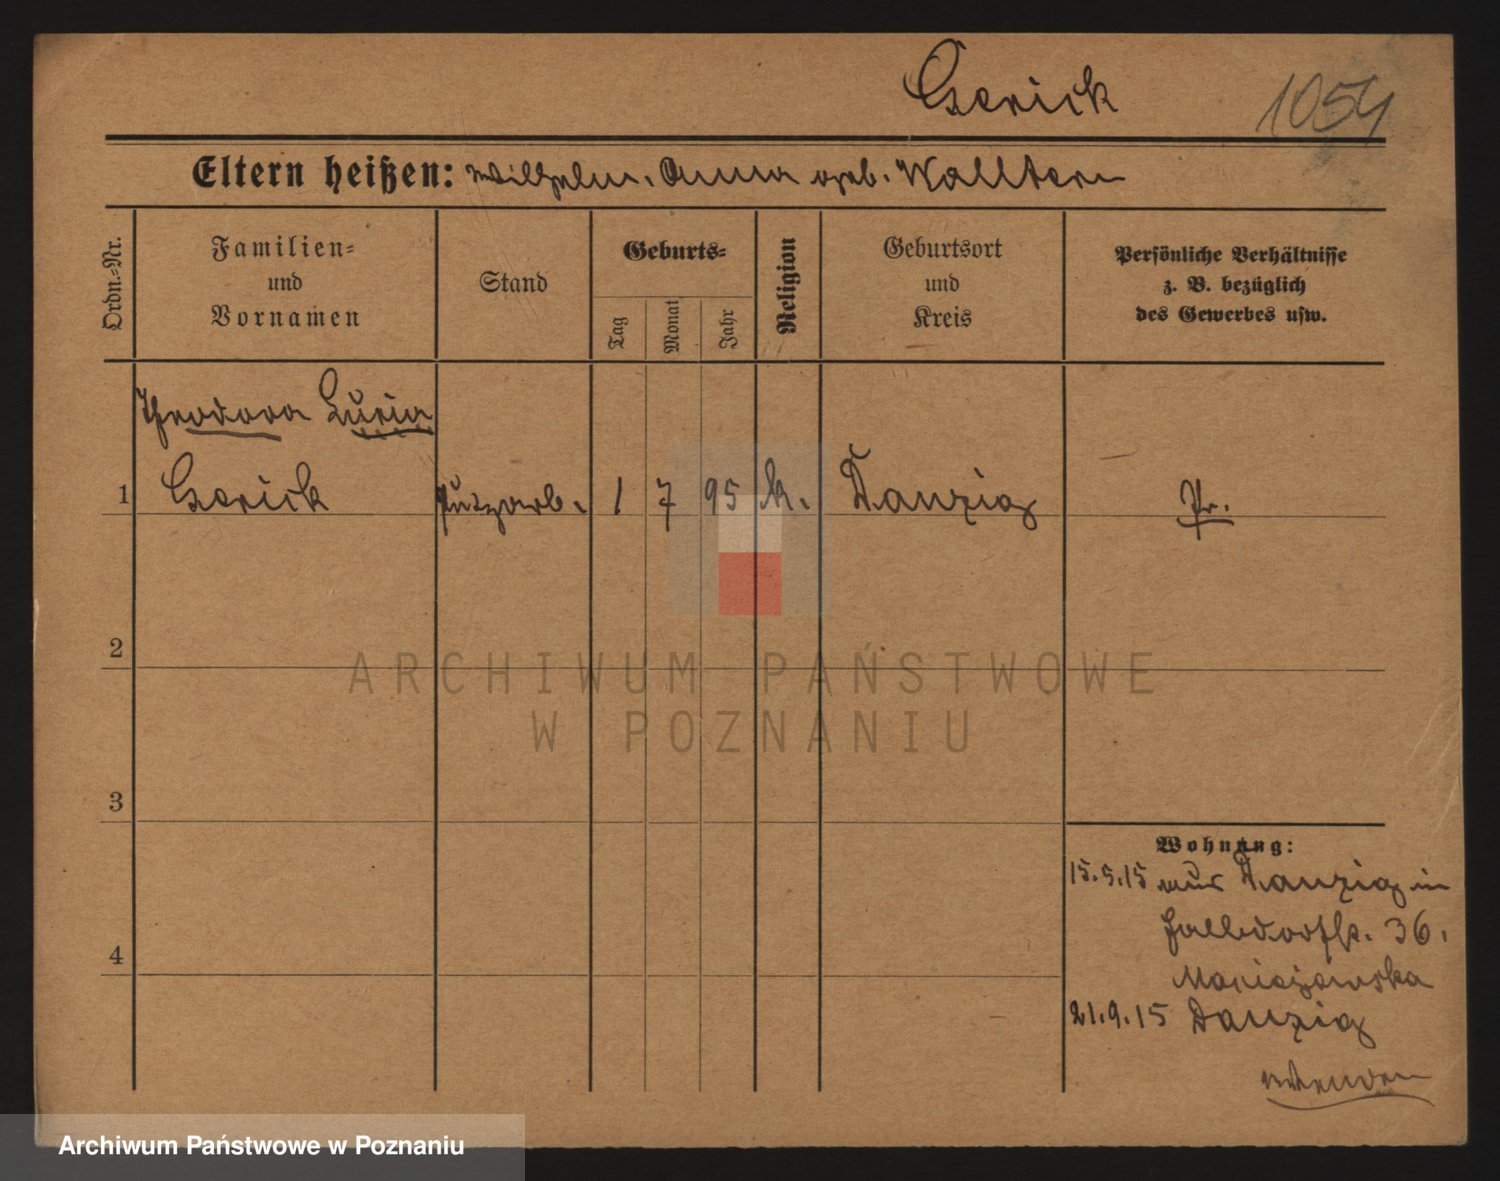 Gerick 1054
Eltern heißen: Wilhelm. Anna geb. Walltern
Ordn.-Nr.
Familien-
und
Vornamen
Stand
Geburts-
Tag
Monat
Jahr
Religion
Geburtsort
und
Kreis
Persönliche Verhältnisse
z. B. bezüglich
des Gewerbes usw.
Theodora
1 Gerick Putzarb. 1 7 95 k. Danzig Pr.
2
3
4
Wohnung:
15.5.15 aus Danzig in
36.
21.9.15 Danzig
wenden
ARCHIWUM PAŃSTWOWE
W POZNANIU
Archiwum Państwowe w Poznaniu